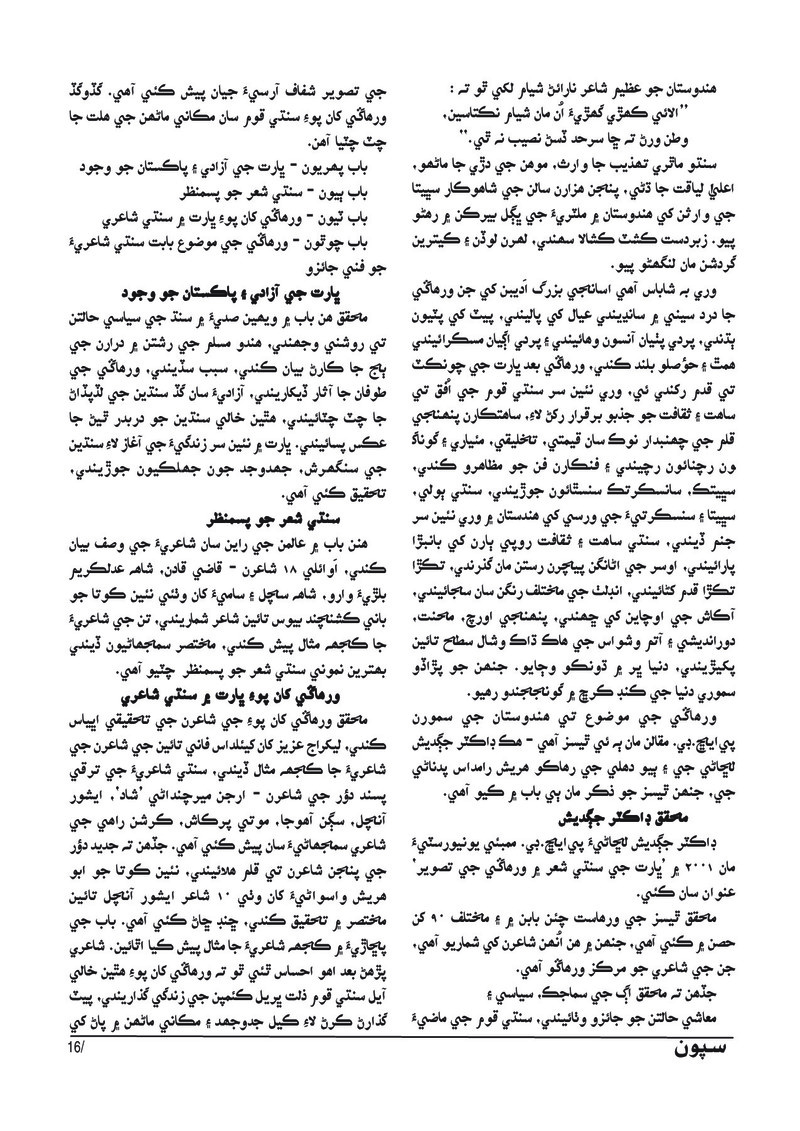 هندوستان جو عظيم شاعر نارائڻ شيام لکي ٿو ته :
”الائي ڪهڙي گهڙيءَ اُن مان شيام نڪتاسين،
وطن ورڻ ته ڇا سرحد ڏسڻ نصيب نه ٿي.“
سنڌو ماٿري تهذيب جا وارث، موهن جي دڙي جا ماڻهو،
اعليٰ لياقت جا ڌڻي، پنجن هزارن سالن جي شاهوڪار سڀيتا
جي وارثن کي هندوستان ۾ ملٽريءَ جي ڀڳل بيرڪن ۾ رهڻو
پيو. زبردست ڪشٽ ڪشالا سهندي، لهرن لوڏن ۽ ڪيترين
گردشن مان لنگهڻو پيو.
وري به شاباس آهي اسانجي بزرگ اَديبن کي جن ورهاڱي
جا درد سيني ۾ سانڍيندي عيال کي پاليندي، پيٽ کي پٽيون
ٻڌندي، پردي پٺيان آنسون وهائيندي ۽ پردي اڳيان مسڪرائيندي
همٿ ۽ حوُصلو بلند ڪندي، ورهاڱي بعد ڀارت جي چونڪٽ
تي قدم رکندي ئي، وري نئين سر سنڌي قوم جي اُفق تي
ساهت ۽ ثقافت جو جذبو برقرار رکڻ لاءِ، ساهتڪارن پنهنجي
قلم جي چهنبدار نوڪ سان قيمتي، تخليقي، مئياري ۽ گوناگ
ون رچنائون رچيندي ۽ فنڪارن فن جو مظاهرو ڪندي،
سڀيتڪ، سانسڪرتڪ سنسٿائون جوڙيندي، سنڌي ٻولي،
سڀيتا ۽ سنسڪرتيءَ جي ورسي کي هندستان ۾ وري نئين سر
جنم ڏيندي، سنڌي ساهت ۽ ثقافت روپي ٻارن کي بانبڙا
پارائيندي، اوسر جي اڻانگن پيچرن رستن مان گذرندي، تڪڙا
تڪڙا قدم کڻائيندي، انڊلٺ جي مختلف رنگن سان سجائيندي،
آڪاش جي اوچاين کي ڇهندي، پنهنجي اورچ، محنت،
دورانديشي ۽ آتم وشواس جي هاڪ ڌاڪ وشال سطح تائين
پکيڙيندي، دنيا ڀر ۾ ڌونڪو وڄايو. جنهن جو پڙاڏو
سموري دنيا جي ڪنڊ ڪرڇ ۾ گونججندو رهيو.
ورهاڱي جي موضوع تي هندوستان جي سمورن
پي.ايڇ.ڊي. مقالن مان ٻه ئي ٿيسز آهي - هڪ ڊاڪٽر جڳديش
لڇاڻي جي ۽ ٻيو دهلي جي رهاڪو هريش رامداس پدناڻي
جي، جنهن ٿيسز جو ذڪر مان ٻي باب ۾ ڪيو آهي.
محقق ڊاڪٽر جڳديش
ڊاڪٽر جڳديش لڇاڻيءَ پي.ايڇ.ڊي. ممبئي يونيورسٽيءَ
مان ۲۰۰۱ ۾ ’ڀارت جي سنڌي شعر ۾ ورهاڱي جي تصوير‘
عنوان سان ڪئي.
محقق ٿيسز جي ورهاست چئن بابن ۾ ۽ مختلف ۹۰ کن
حصن ۾ ڪئي آهي، جنهن ۾ هن اُنهن شاعرن کي شماريو آهي،
جن جي شاعري جو مرڪز ورهاڱو آهي.
جڏهن ته محقق اڳ جي سماجڪ، سياسي ۽
معاشي حالتن جو جائزو وٺائيندي، سنڌي قوم جي ماضيءَ
جي تصوير شفاف آرسيءَ جيان پيش ڪئي آهي. گڏوگڏ
ورهاڱي کان پوءِ سنڌي قوم سان مڪاني ماڻهن جي هلت جا
چٽ چٽيا آهن.
باب پهريون - ڀارت جي آزادي ۽ پاڪستان جو وجود
باب ٻيون - سنڌي شعر جو پسمنظر
باب ٽيون - ورهاڱي کان پوءِ ڀارت ۾ سنڌي شاعري
باب چوٿون - ورهاڱي جي موضوع بابت سنڌي شاعريءَ
جو فني جائزو
ڀارت جي آزادي ۽ پاڪستان جو وجود
محقق هن باب ۾ ويهين صديءَ ۾ سنڌ جي سياسي حالتن
تي روشني وجهندي، هندو مسلم جي رشتن ۾ درارن جي
ٻاڄ جا ڪارڻ بيان ڪندي، سبب سڏيندي، ورهاڱي جي
طوفان جا آثار ڏيکاريندي، آزاديءَ سان گڏ سنڌين جي لڏپلاڻ
جا چٽ چٽائيندي، هٿين خالي سنڌين جو دربدر ٿيڻ جا
عڪس پسائيندي. ڀارت ۾ نئين سر زندگيءَ جي آغاز لاءِ سنڌين
جي سنگهرش، جهدوجد جون جهلڪيون جوڙيندي،
تحقيق ڪئي آهي.
سنڌي شعر جو پسمنظر
هنن باب ۾ عالمن جي راين سان شاعريءَ جي وصف بيان
ڪندي، اَوائلي ۱۸ شاعرن - قاضي قادن، شاهه عدلڪريم
بلڙيءَ وارو، شاهه سچل ۽ ساميءَ کان وٺي نئين ڪوتا جو
باني ڪشنچند بيوس تائين شاعر شماريندي، تن جي شاعريءَ
جا ڪجهه مثال پيش ڪندي، مختصر سمجهاڻيون ڏيندي
بهترين نموني سنڌي شعر جو پسمنظر چٽيو آهي.
ورهاڱي کان پوءِ ڀارت ۾ سنڌي شاعري
محقق ورهاڱي کان پوءِ جي شاعرن جي تحقيقي اڀياس
ڪندي، ليکراج عزيز کان کيئلداس فاني تائين جي شاعرن جي
شاعريءَ جا ڪجهه مثال ڏيندي، سنڌي شاعريءَ جي ترقي
پسند دؤر جي شاعرن - ارجن ميرچنداڻي ’شاد‘، ايشور
آنچل، سڳن آهوجا، موتي پرڪاش، ڪرشن راهي جي
شاعري سمجهاڻيءَ سان پيش ڪئي آهي. جڏهن ته جديد دؤر
جي پنجن شاعرن تي قلم هلائيندي، نئين ڪوتا جو ابو
هريش واسواڻيءَ کان وٺي ۱۰ شاعر ايشور آنچل تائين
مختصر ۾ تحقيق ڪندي، ڇنڊ ڇاڻ ڪئي آهي. باب جي
پڇاڙيءَ ۾ ڪجهه شاعريءَ جا مثال پيش ڪيا اٿائين. شاعري
پڙهڻ بعد اهو احساس ٿئي ٿو ته ورهاڱي کان پوءِ هٿين خالي
آيل سنڌي قوم ذلت ڀريل ڪئمپن جي زندگي گذاريندي، پيٽ
گذارڻ ڪرڻ لاءِ ڪيل جدوجهد ۽ مڪاني ماڻهن ۾ پاڻ کي
سپون
16/